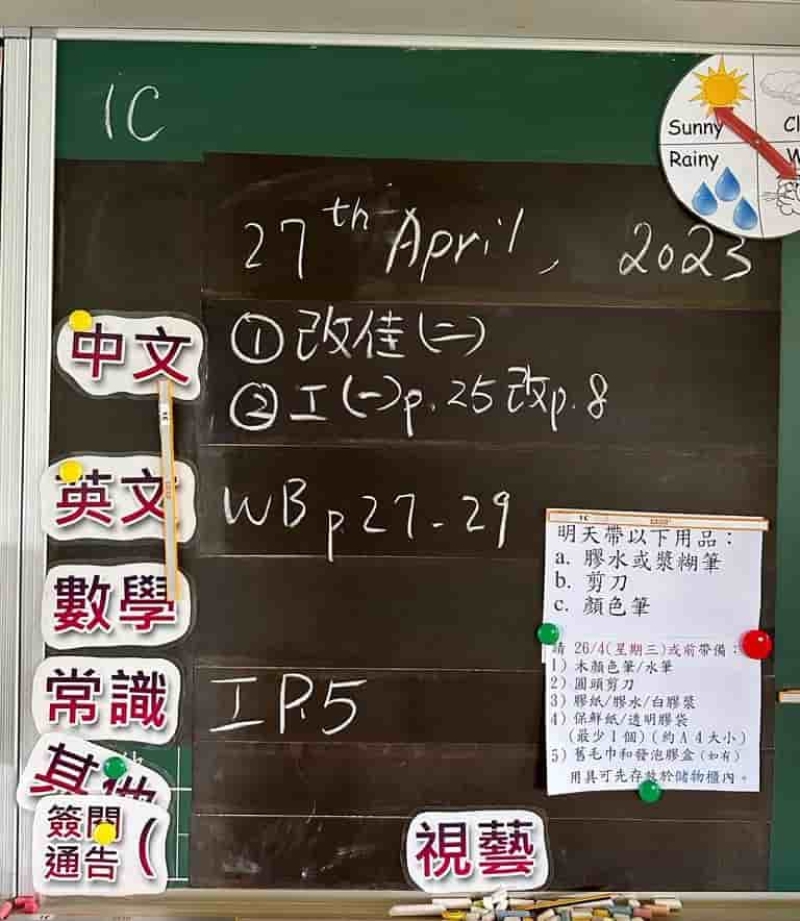 1C
Sunny
Cl
Rainy
W
27th April, 2023
中文
①改佳(二)
②工(一)p.25改p.8
英文
WB p27-29
數學
常識
工P.5
其他
簽閱
通告(
視藝
明天帶以下用品：
a. 膠水或漿糊筆
b. 剪刀
c. 顏色筆
請 26/4(星期三)或前帶備：
1) 木顏色筆/水筆
2) 圓頭剪刀
3) 膠紙/膠水/白膠漿
4) 保鮮紙/透明膠袋
(最少1個)(約A4大小)
5) 舊毛巾和發泡膠盒(如有)
用具可先存放於儲物櫃內。